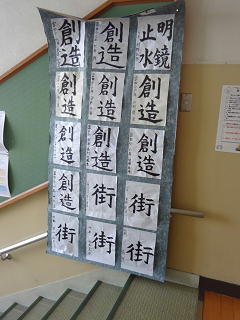 明鏡
止水
創造
創造
創造
創造
創造
創造
創造
創造
創造
街
創造
街
街
街
街